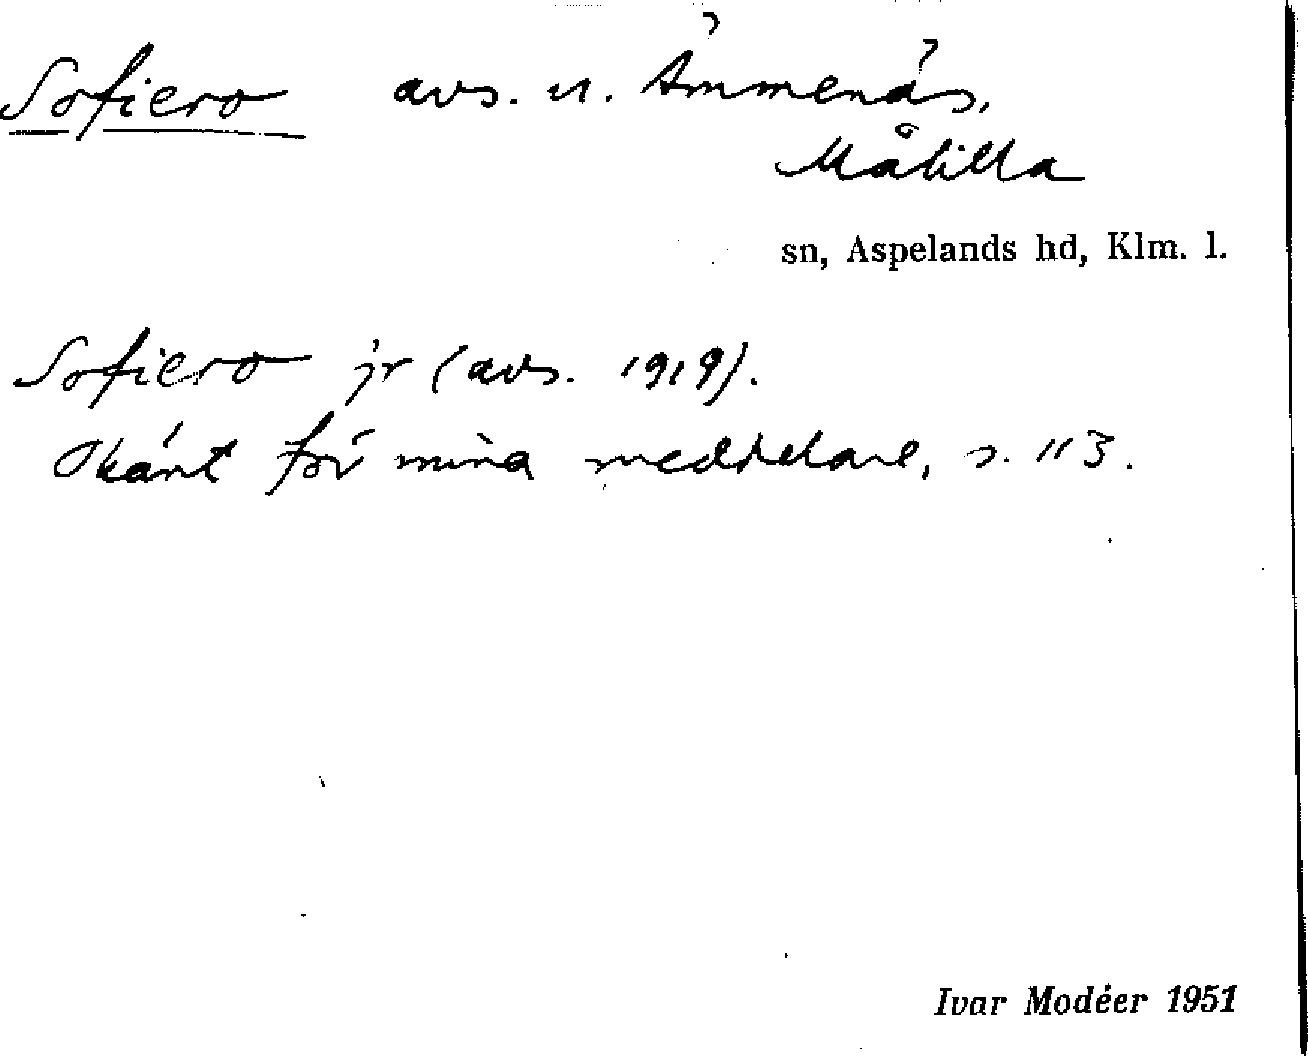 Sofiero avs. u. Åmmenäs,
Målilla
sn, Aspelands hd, Klm. l.
Sofiero jr (avs. 1919).
Okänt för mina meddelare, s. 113.
Ivar Modéer 1951